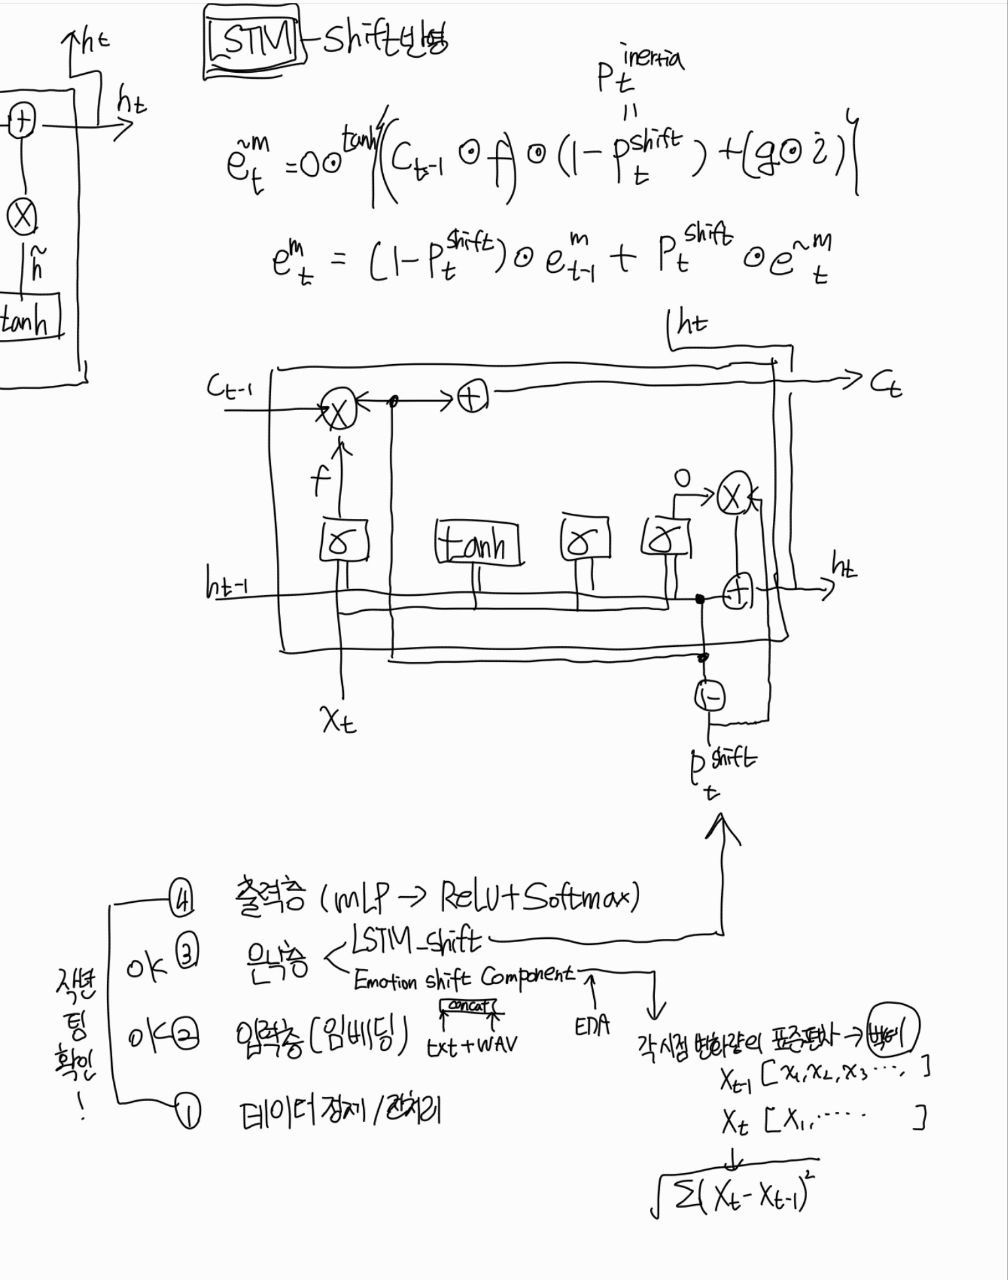 ht
ht
h̃
tanh
STM - Shift반영
Pt^inertia
=
ẽt^m = o⊙tanh((Ct-1 ⊙ f) ⊙ (1-Pt^shift) + (g⊙i))
et^m = (1-Pt^shift) ⊙ et-1^m + Pt^shift ⊙ ẽt^m
ht
Ct-1
Ct
f
o
σ tanh σ σ
ht-1
ht
1-
xt
Pt^shift
④ 출력층 (MLP → ReLU+Softmax)
OK ③ 은닉층 < LSTM_shift
Emotion shift Component
concat
EDA
OK ② 입력층 (임베딩) txt + WAV
① 데이터정제/전처리
작년
팀
확인
!
각시점 변화량의 표준편차 →
Xt-1 [x1, x2, x3 ···, ]
Xt [x1, ····· ]
↓
√Σ(Xt - Xt-1)²